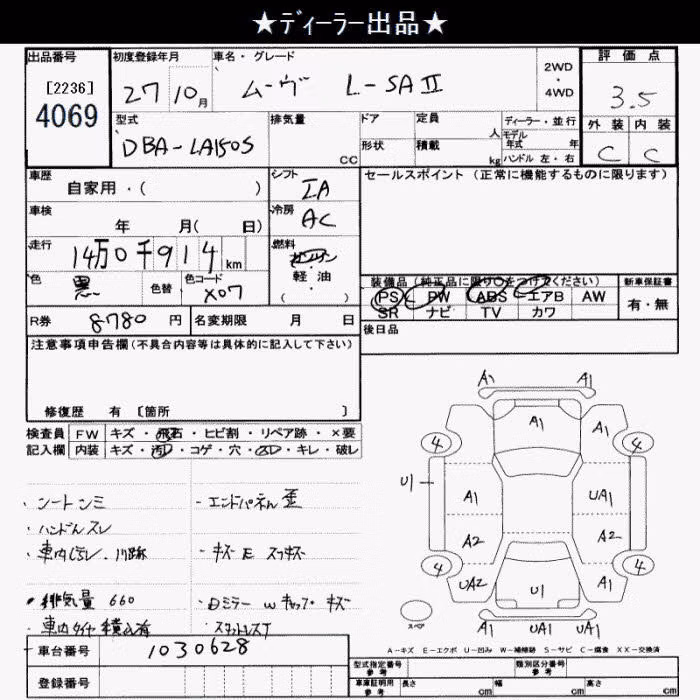 ★ディーラー出品★
出品番号
[2236]
4069
初度登録年月
27 10月
車名・グレード
ムーヴ L-SAⅡ
2WD
・
4WD
評価点
3.5
外装 内装
C C
型式
DBA-LA150S
排気量
CC
ドア
形状
定員
人
積載
kg
ディーラー・並行
モデル年式 年
ハンドル 左・右
車歴
自家用・( )
シフト
IA
車検
年 月( 日)
冷房
AC
走行
14万0千914km
燃料
ガソリン
軽・油
( )
色
黒
色替
色コード
X07
R券 8780 円
名変期限 月 日
セールスポイント(正常に機能するものに限ります)
装備品(純正品に限り○をつけてください)
PS PW ABS エアB AW
SR ナビ TV カワ
新車保証書
有・無
後日品
注意事項申告欄(不具合内容等は具体的に記入して下さい)
修復歴 有 [箇所 ]
検査員
記入欄
FW キズ・飛石・ヒビ割・リペア跡・×要
内装 キズ・汚・コゲ・穴・・キレ・破レ
・シートシミ
・ハンドルスレ
・車内
・排気量 660
・車内タイヤ積込有
・エンドパネル歪
・キズ E スリキズ
・Dミラー W キャップ キズ
・スタットレスT
A1 A1
A1
A1
4 4
U1
A1 UA1
A2 A2
4 4
UA2 U1 A1
UA1 UA1
スペア
A-キズ E-エクボ U-凹み W-補修跡 S-サビ C-腐食 XX-交換済
車台番号 1030628
登録番号
型式指定番号
参考
類別区分番号
参考
車庫証明用
参考
長さ cm 幅 cm 高さ cm